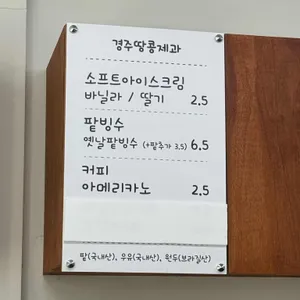 경주땅콩제과
소프트아이스크림
바닐라 / 딸기 2.5
팥빙수
옛날팥빙수 (+팥추가 3.5) 6.5
커피
아메리카노 2.5
팥(국내산), 우유(국내산), 원두(브라질산)